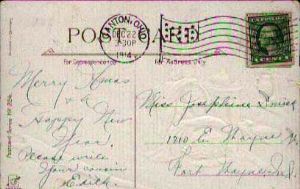 POST CARD
CANTON, OHIO
DEC 22
2:30P
1914
1 CENT
For Correspondence
For Address Only
Merry Xmas
+ a
Happy New
Year.
Please write
Your cousin
Edith.
Miss Josephine
1710 E. Wayne
Fort Wayne Ind.